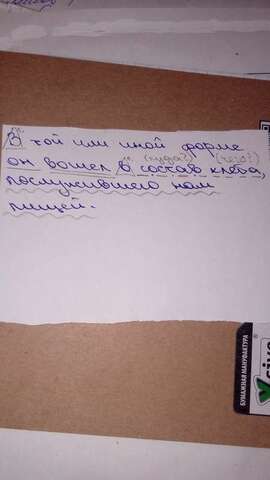 В той или иной форме
он вошел в состав хлеба,
(куда?) (чего?)
послужившего нам
пищей.
БУМАЖНАЯ МАНУФАКТУРА